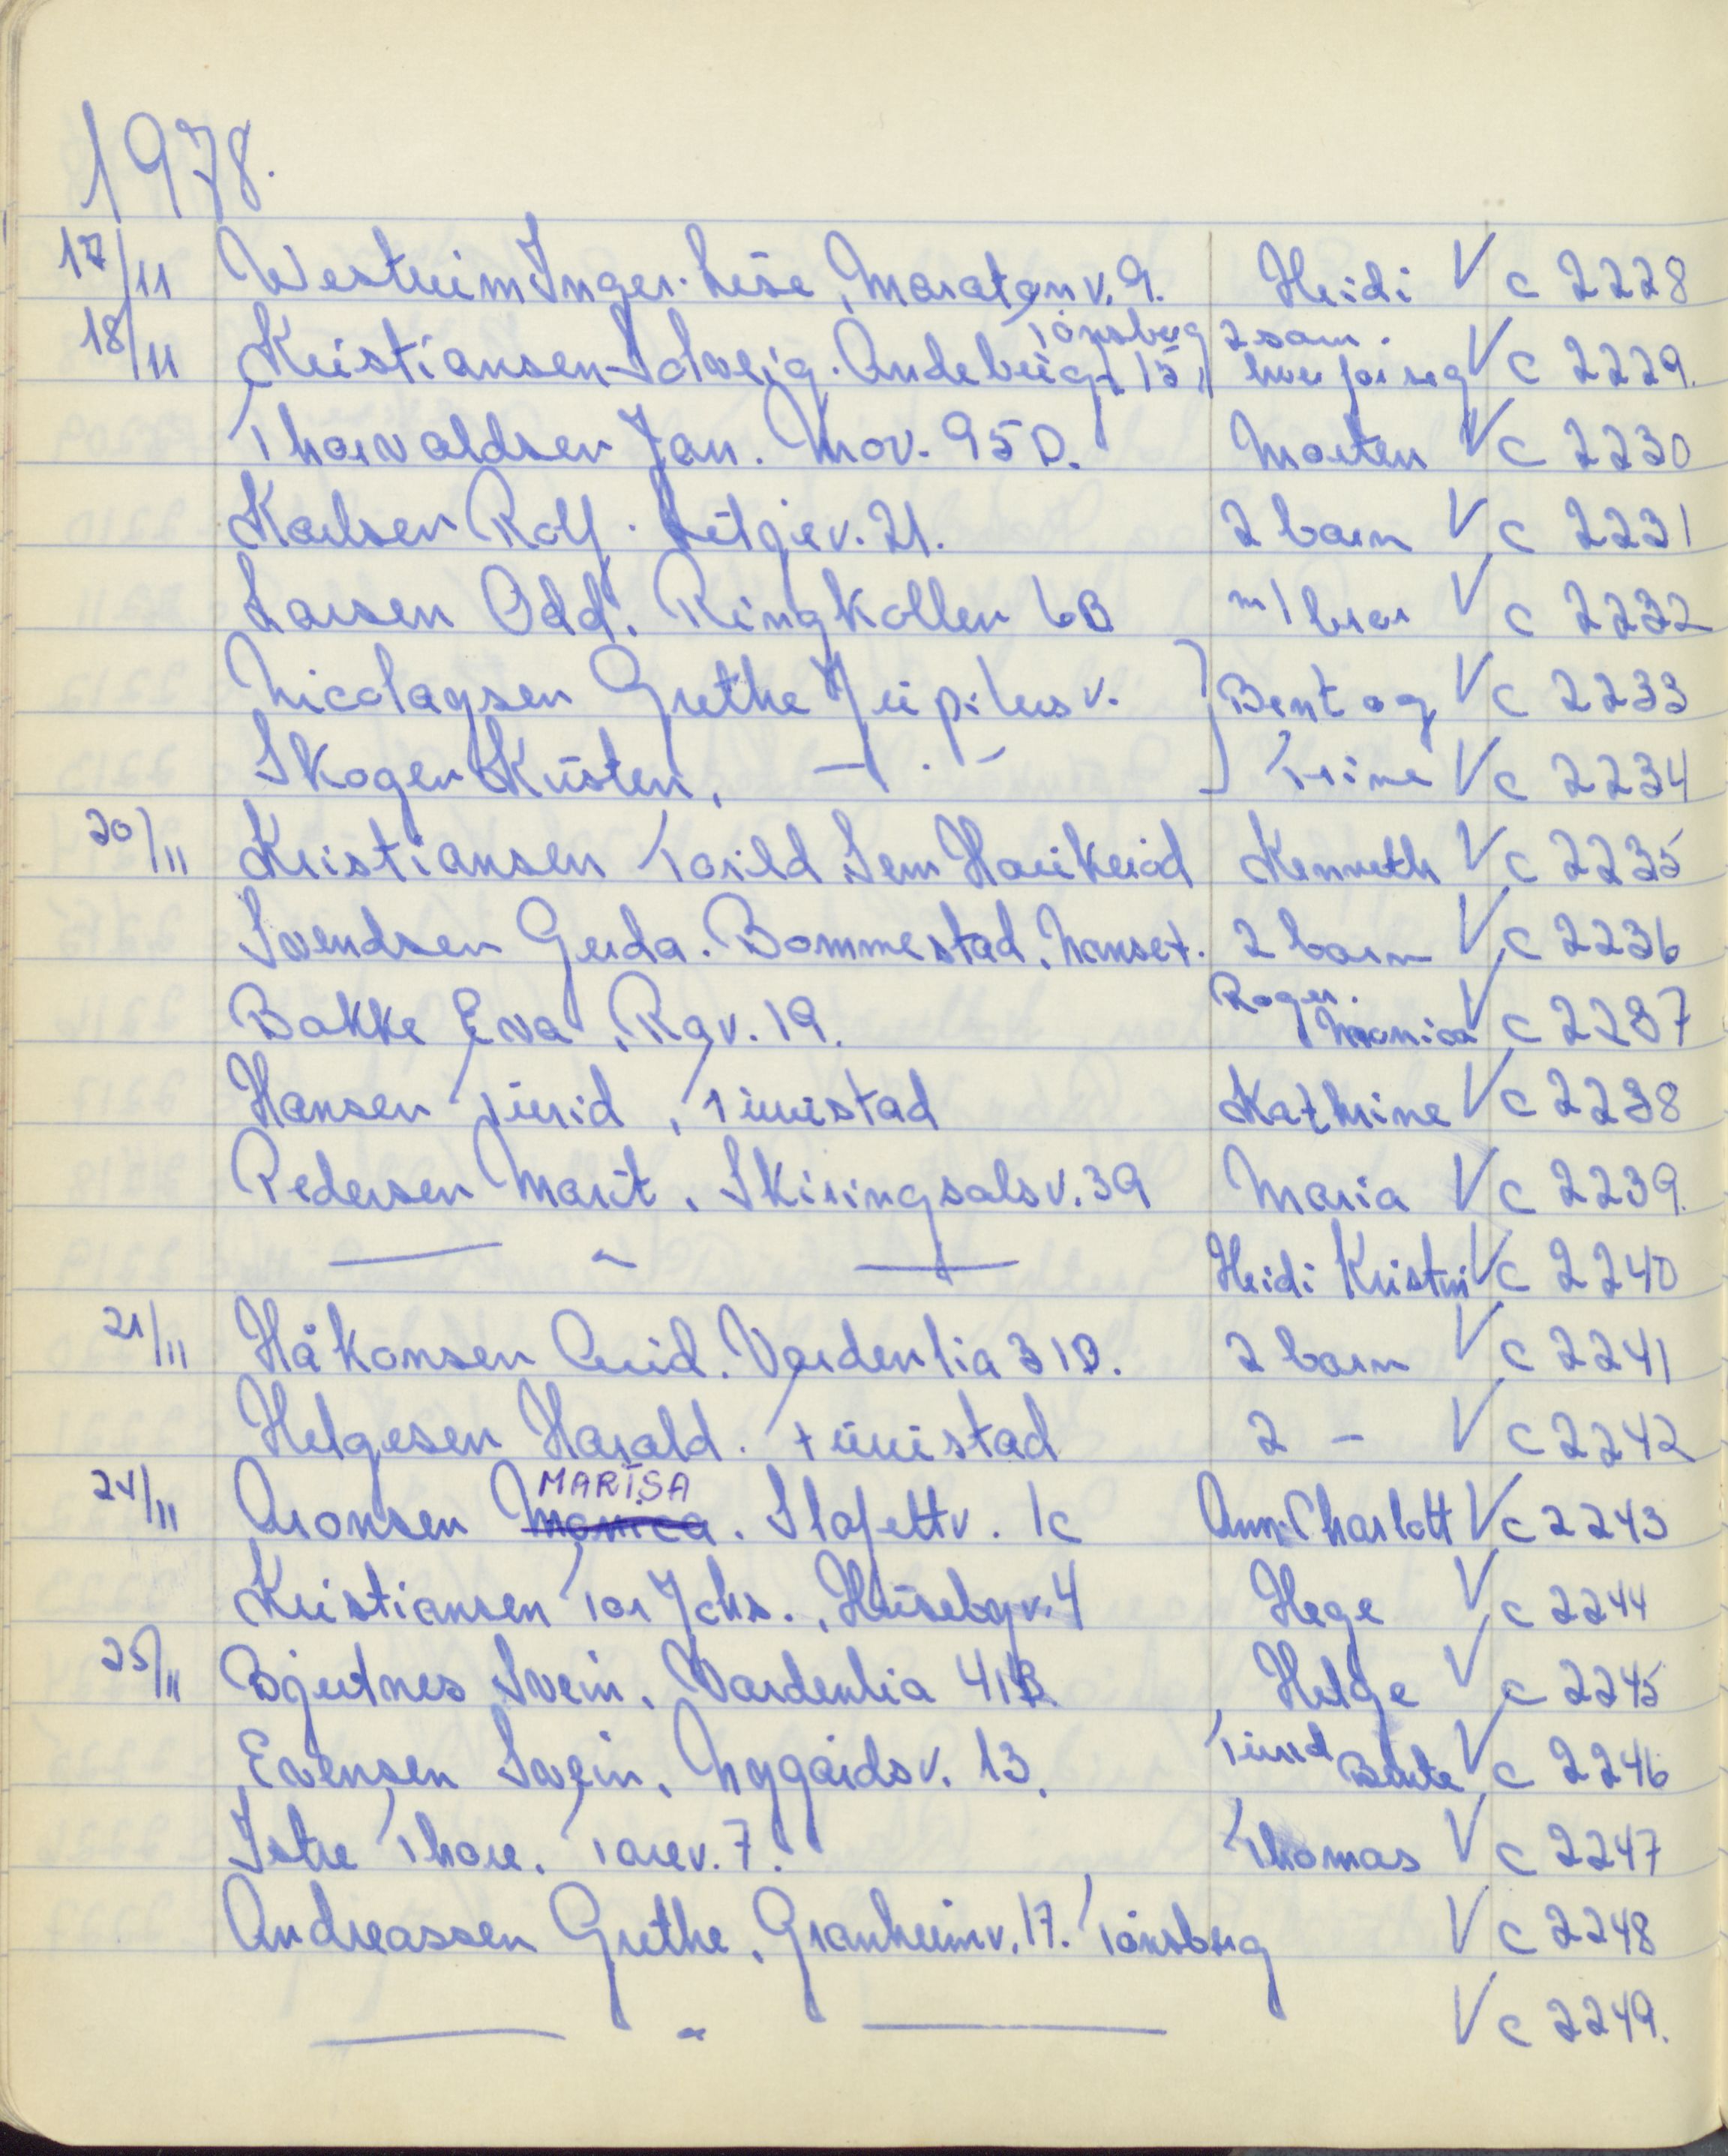 1978.
17/11 Westrum Inger-Lise, Maratonv. 9. Heidi V c 2228
18/11 Kristiansen Solveig. Andebugt 15, Tønsberg 2 sam. hver for seg V c 2229.
Thorvaldsen Jan. Mov. 95 D. Morten V c 2230
Karlsen Rolf. Litgjev. 21. 2 barn V c 2231
Larsen Odd. Ringkollen 6B m/bror V c 2232
Nicolaysen Grethe Jerpilusv. } Bent og V c 2233
Skogen Kirsten, — " — } Trine V c 2234
20/11 Kristiansen Torild Sem Haukerød Kenneth V c 2235
Svendsen Gerda. Bommestad, Nanset. 2 barn V c 2236
Bakke Eva, Rgv. 19. Roger. Monica V c 2237
Hansen Turid, Tinvistad Kathrine V c 2238
Pedersen Marit. Skiringsalsv. 39 Maria V c 2239.
— " — Heidi Kristin V c 2240
21/11 Håkonsen Arvid. Vardenlia 31D. 2 barn V c 2241
Helgesen Harald. 2 - V c 2242
24/11 Aronsen Monica MARISA. Stafettv. 1c Ann-Charlott V c 2243
Kristiansen Tor Johs., Husebyv. 4 Hege V c 2244
25/11 Bjertnes Svein, Vardenlia 41B Helge V c 2245
Evensen Svein, Nygårdsv. 13. Turid Bente V c 2246
Istre Thore. Torev. 7. Thomas V c 2247
Andreassen Grethe, Granheimv. 17. Tønsberg V c 2248
— " — V c 2249.